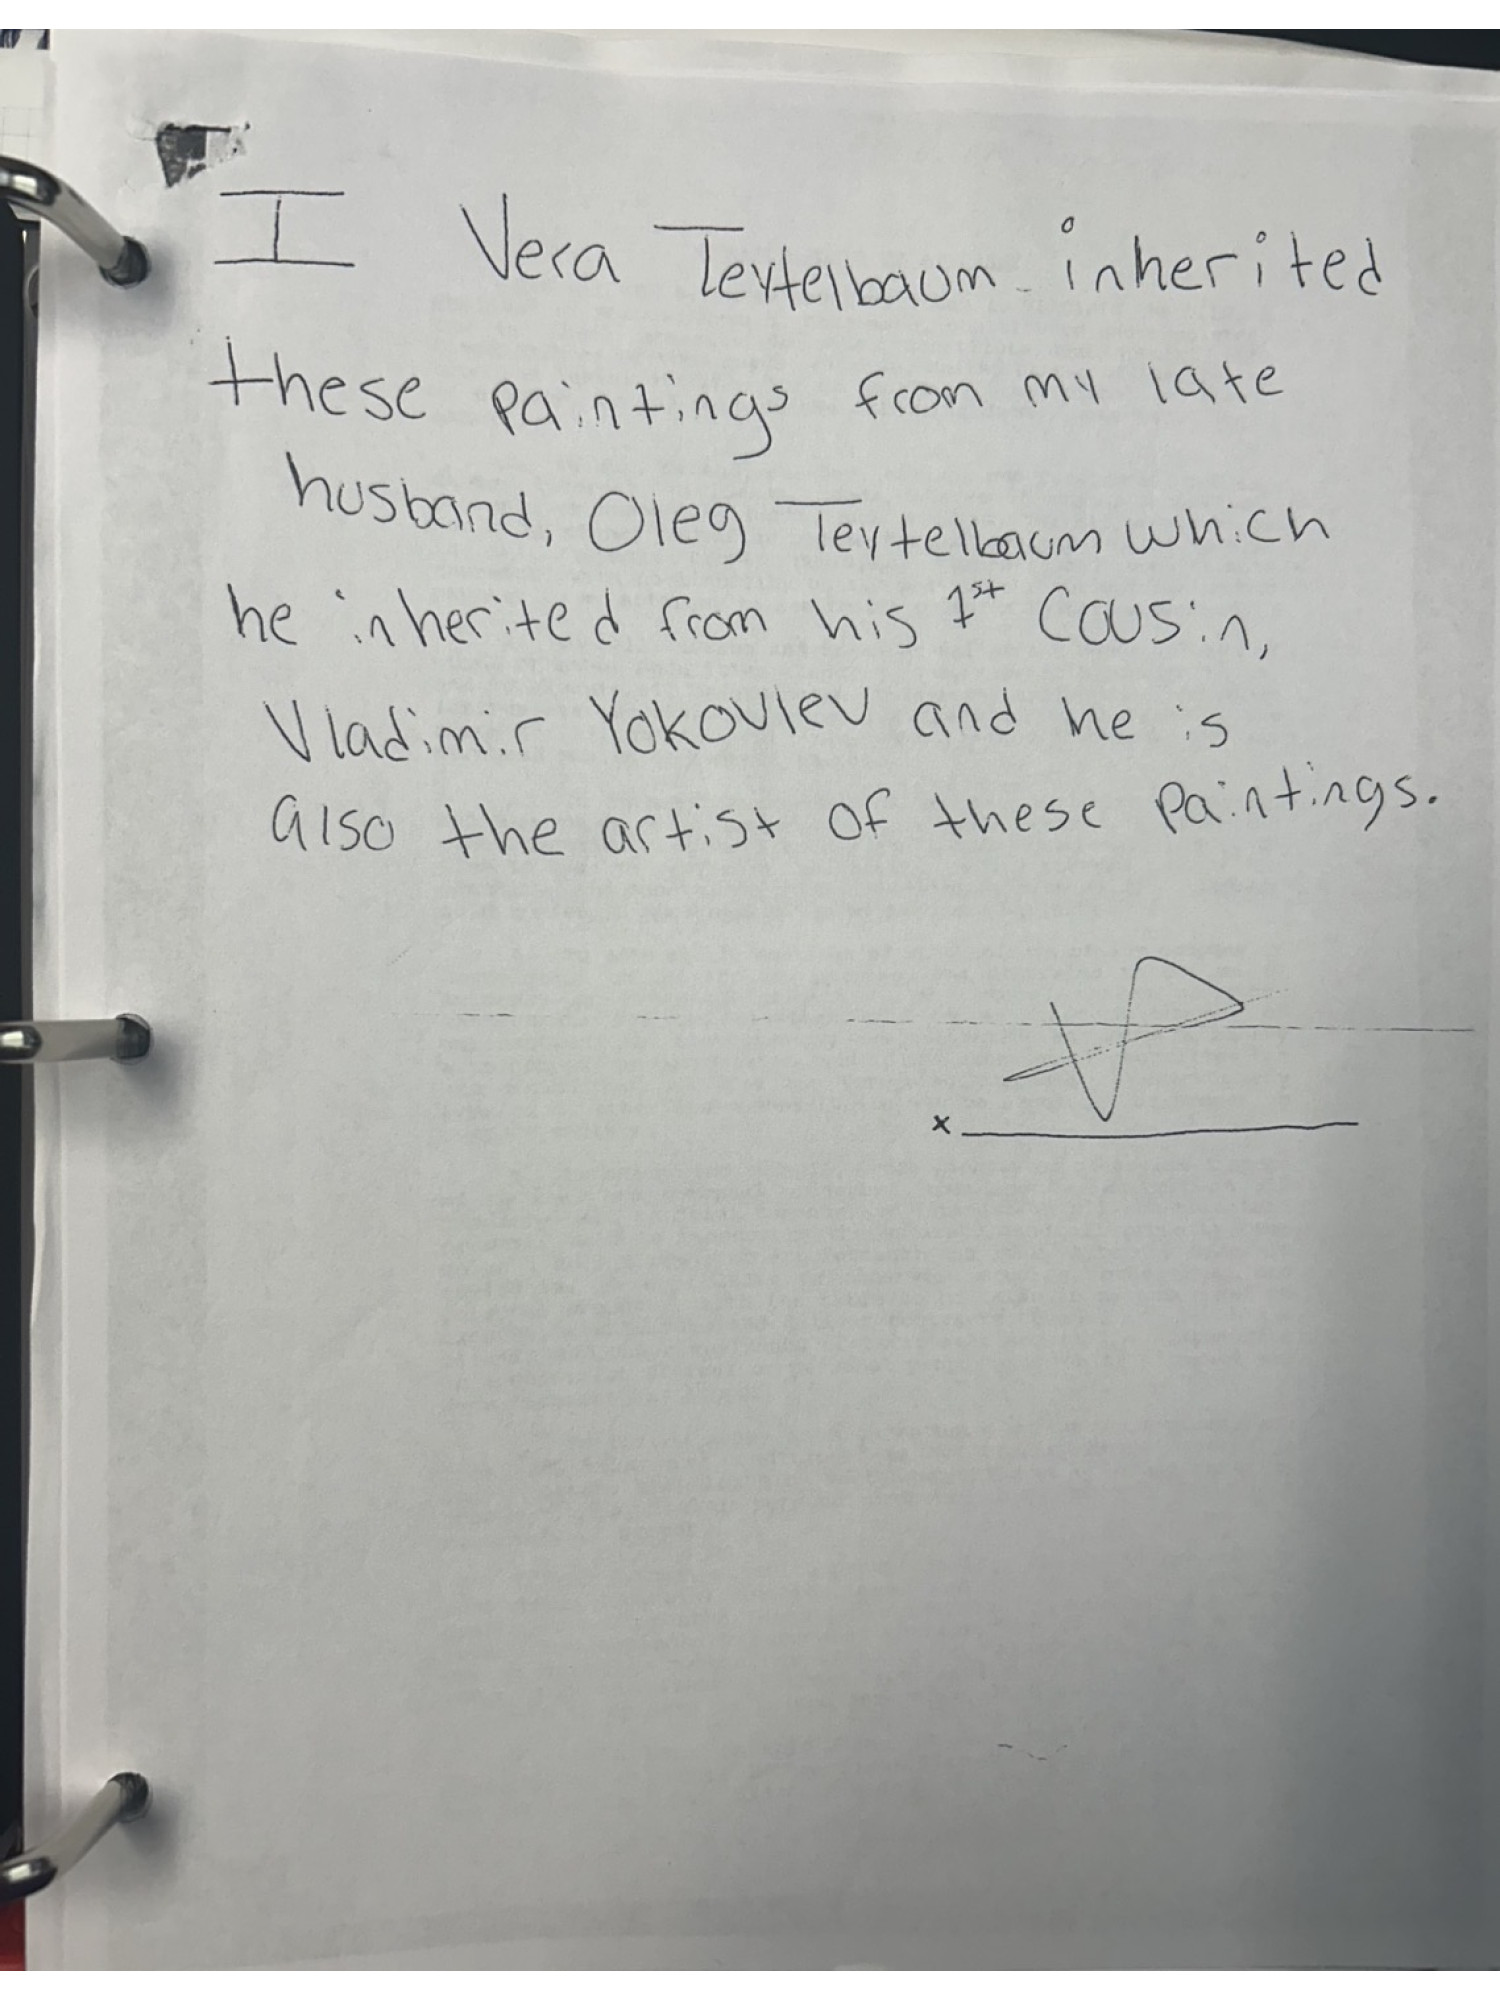 I Vera Teytelbaum inherited
these paintings from my late
husband, Oleg Teytelbaum which
he inherited from his 1st Cousin,
Vladimir Yokovlev and he is
also the artist of these paintings.
x